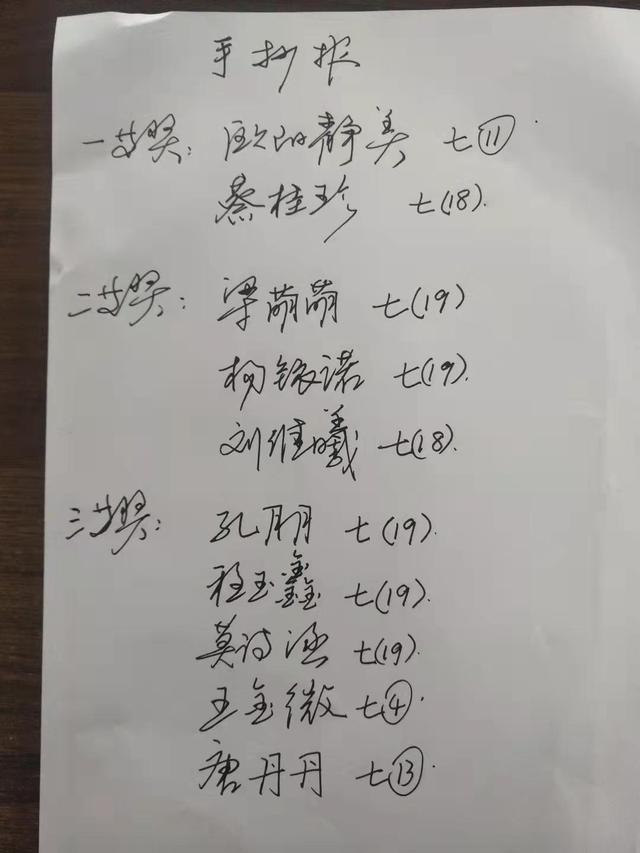 手抄报
一等奖：欧阳静美 七⑪.
蔡桂珍 七(18).
二等奖：梁萌萌 七(19)
杨铱诺 七(19).
刘维曦 七(18).
三等奖：孔朋 七(19).
程玉鑫 七(19).
莫诗涵 七(19).
王金微 七④.
唐丹丹 七⑬.